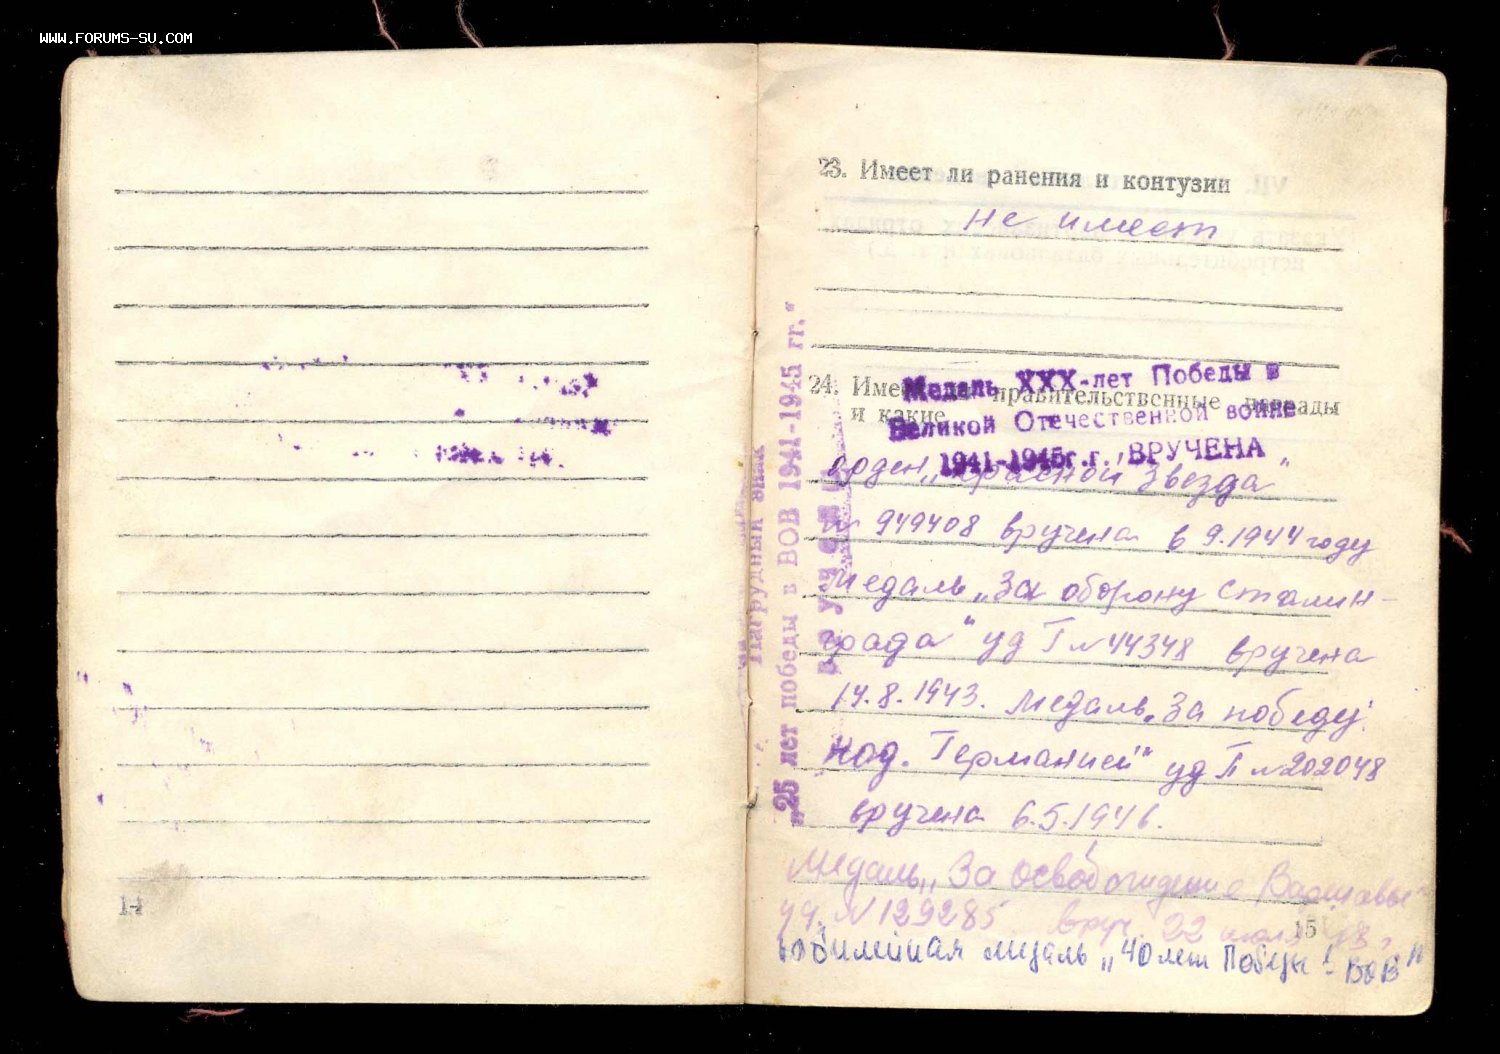 WWW.FORUMS-SU.COM
14
23. Имеет ли ранения и контузии
не имеет
24. Имеет правительственные награды
и какие
Медаль XXX-лет Победы в
Великой Отечественной войне
1941-1945г.г. ВРУЧЕНА
орден „Красной Звезда"
№ 949408 вручена в 9.1944 году
Медаль „За оборону Сталин-
града" уд Г №44348 вручена
14.8.1943. Медаль „За победу
над. Германией" уд П №202048
вручена 6.5.1946.
Медаль „За освобождение Варшавы"
уд. №129285 вруч. 22
15
юбилейная медаль „40 лет Победы - ВОВ"
Нагрудный знак
„25 лет победы в ВОВ 1941-1945 гг."